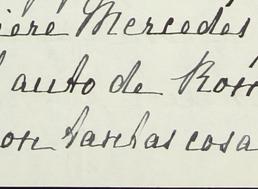 iere Mercedes
auto de Rom
on tantas cosa